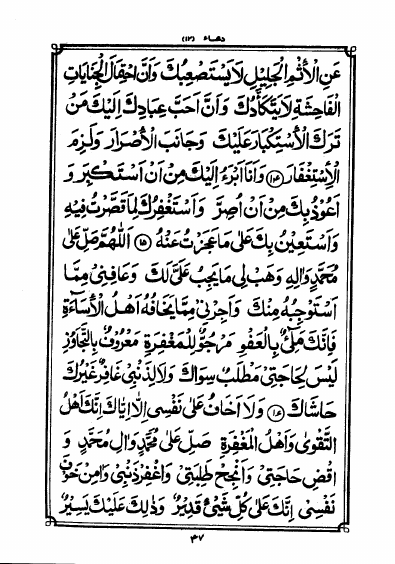 دعاء (۱۲)
عَنِ الْاَثْمِ الْجَلِيْلِ لَا يَسْتَصْعِبُكَ وَ اَنَّ احْتِمَالَ الْجِنَايَاتِ
الْفَاحِشَةِ لَا يَتَكَأَّدُكَ وَ اَنَّ اَحَبَّ عِبَادِكَ اِلَيْكَ مَنْ
تَرَكَ الْاِسْتِكْبَارَ عَلَيْكَ وَ جَانَبَ الْاِصْرَارَ وَ لَزِمَ
الْاِسْتِغْفَارَ ﴿۱۴﴾ وَ اَنَا اَبْرَءُ اِلَيْكَ مِنْ اَنْ اَسْتَكْبِرَ وَ
اَعُوْذُ بِكَ مِنْ اَنْ اُصِرَّ وَ اَسْتَغْفِرُكَ لِمَا قَصَّرْتُ فِيْهِ
وَ اَسْتَعِيْنُ بِكَ عَلٰى مَا عَجَزْتُ عَنْهُ ﴿۱۵﴾ اَللّٰهُمَّ صَلِّ عَلٰى
مُحَمَّدٍ وَ اٰلِهِ وَ هَبْ لِيْ مَا يَجِبُ عَلَيَّ لَكَ وَ عَافِنِيْ مِمَّا
اَسْتَوْجِبُهُ مِنْكَ وَ اَجِرْنِيْ مِمَّا يَخَافُهُ اَهْلُ الْاِسَاءَةِ
فَاِنَّكَ مَلِيْءٌ بِالْعَفْوِ مَرْجُوٌّ لِلْمَغْفِرَةِ مَعْرُوْفٌ بِالتَّجَاوُزِ
لَيْسَ لِحَاجَتِيْ مَطْلَبٌ سِوَاكَ وَ لَا لِذَنْبِيْ غَافِرٌ غَيْرُكَ
حَاشَاكَ ﴿۱۶﴾ وَ لَا اَخَافُ عَلٰى نَفْسِيْ اِلَّا اِيَّاكَ اِنَّكَ اَهْلُ
التَّقْوٰى وَ اَهْلُ الْمَغْفِرَةِ صَلِّ عَلٰى مُحَمَّدٍ وَ اٰلِ مُحَمَّدٍ وَ
اقْضِ حَاجَتِيْ وَ اَنْجِحْ طَلِبَتِيْ وَ اغْفِرْ ذَنْبِيْ وَ اٰمِنْ خَوْفَ
نَفْسِيْ اِنَّكَ عَلٰى كُلِّ شَيْءٍ قَدِيْرٌ وَ ذٰلِكَ عَلَيْكَ يَسِيْرٌ
۴۷